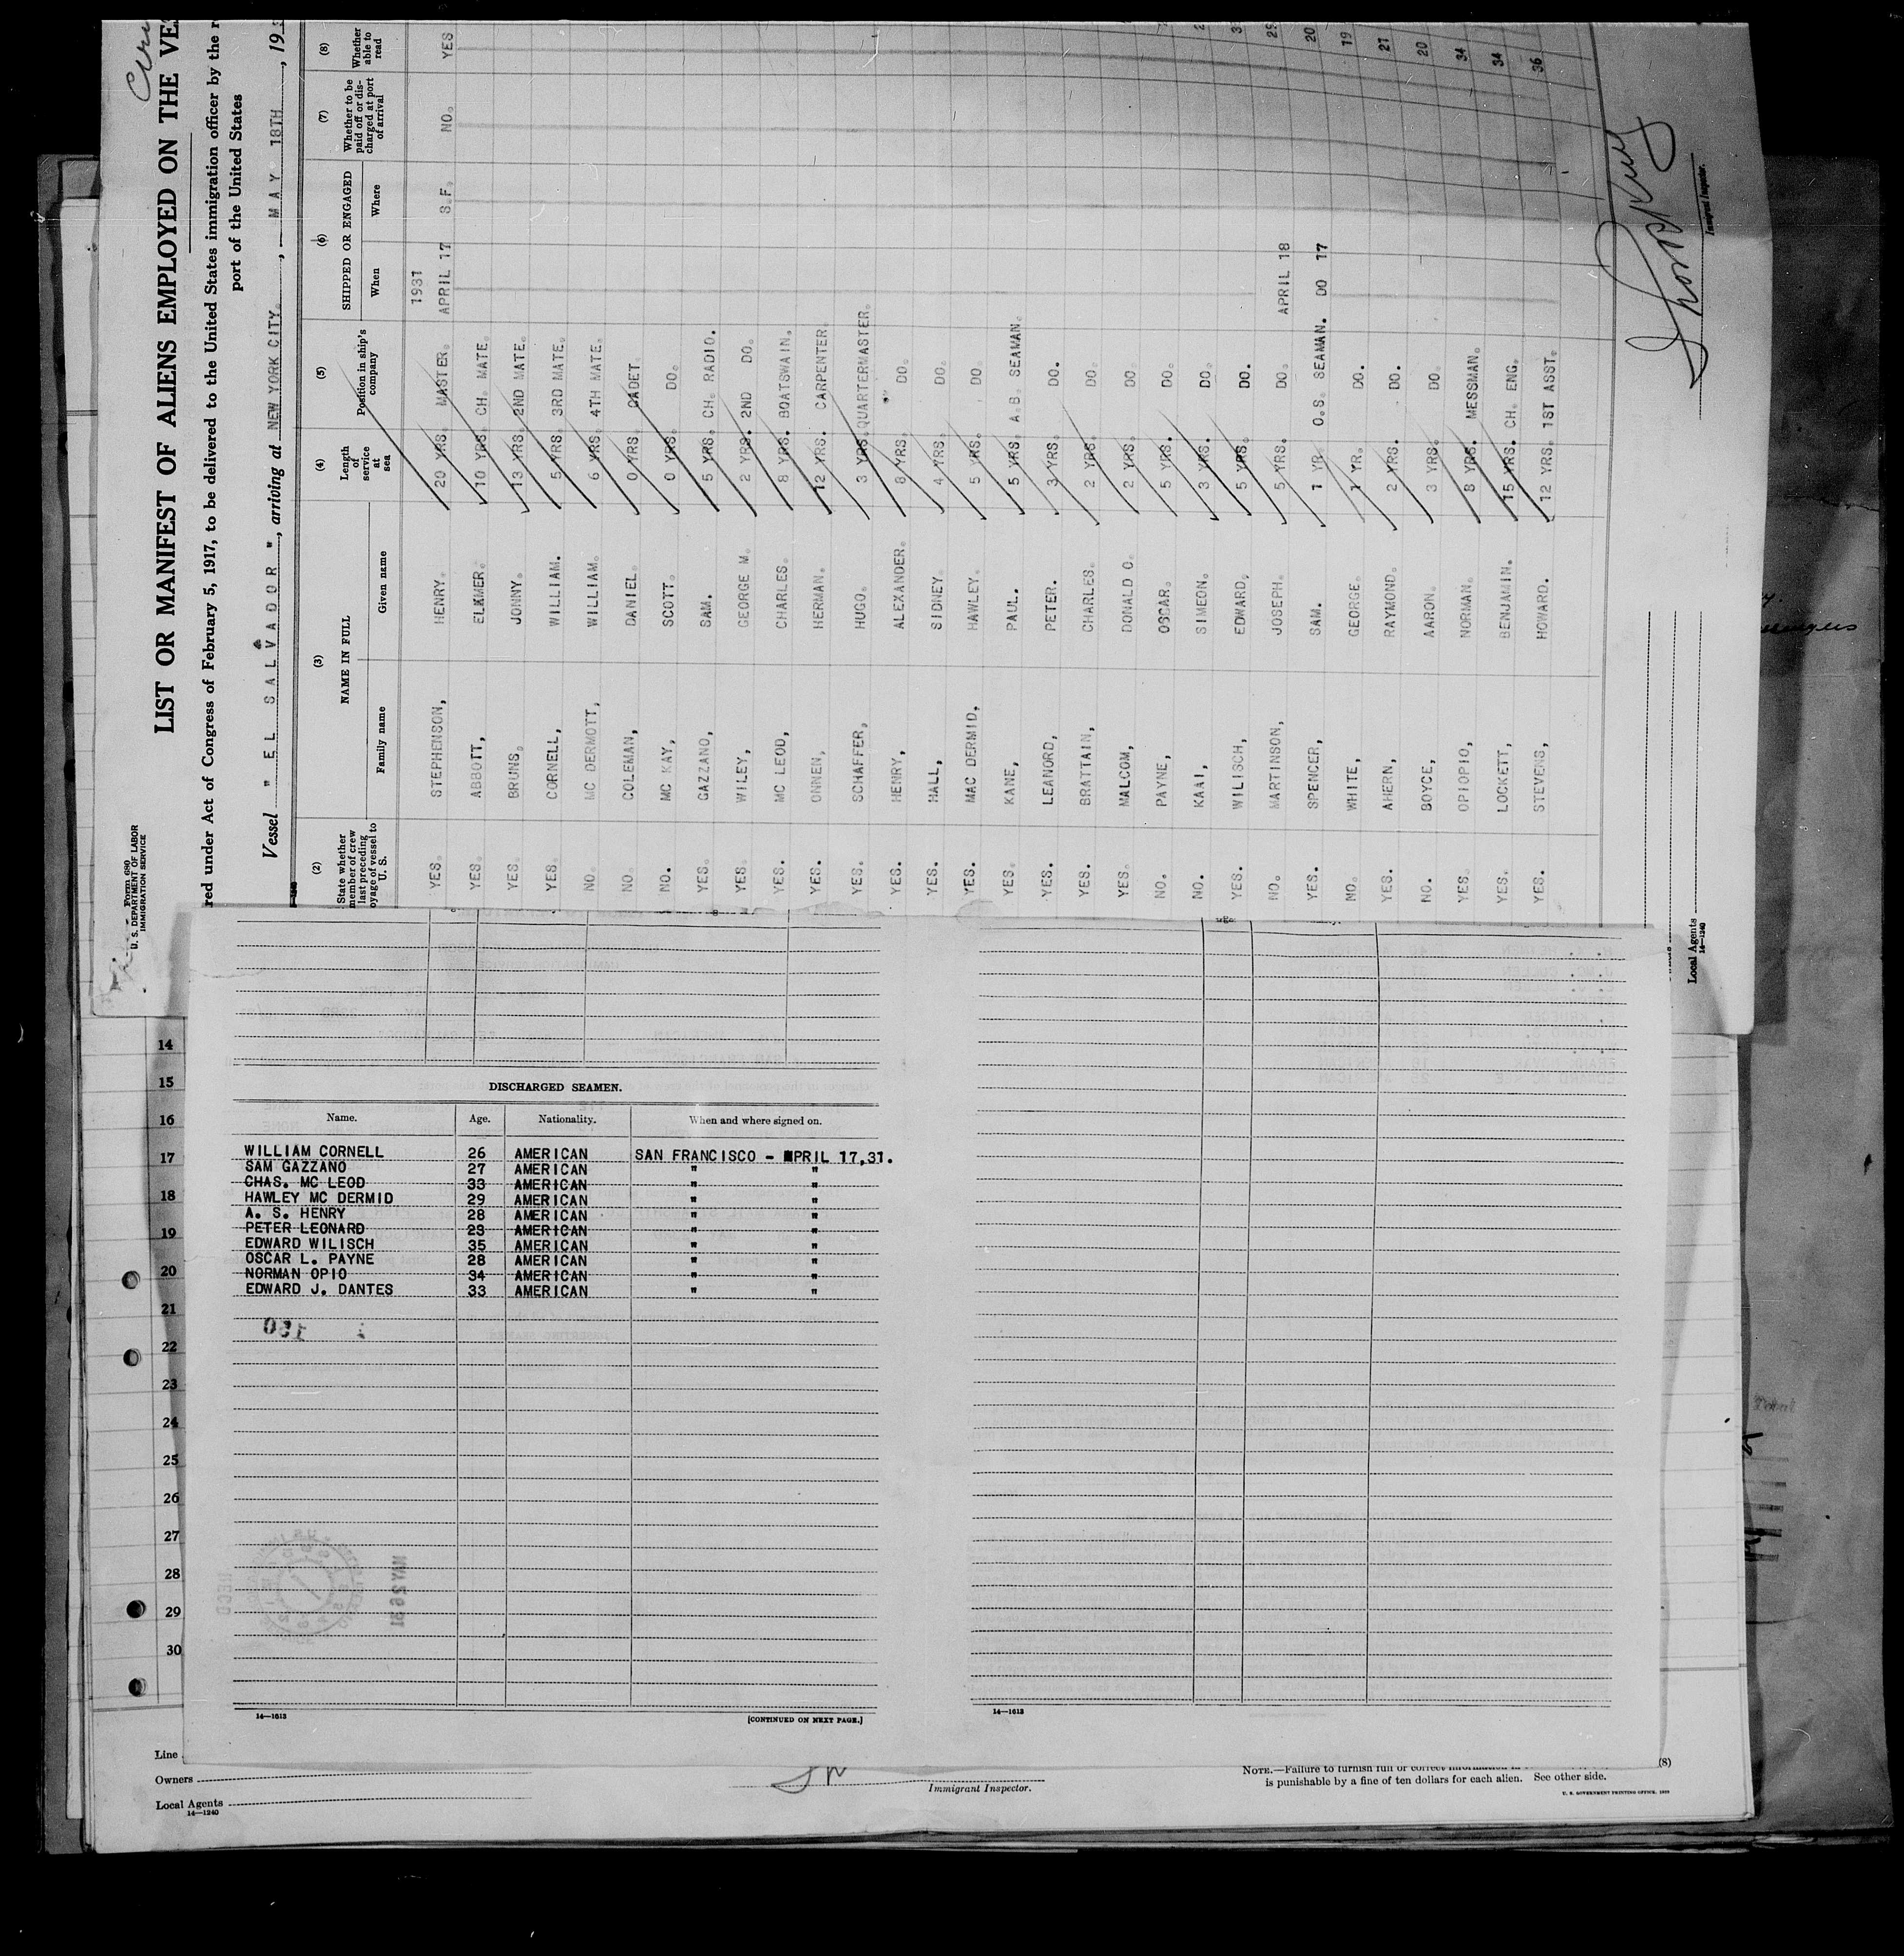 Form 680
U. S. DEPARTMENT OF LABOR
IMMIGRATION SERVICE
LIST OR MANIFEST OF ALIENS EMPLOYED ON THE VE
red under Act of Congress of February 5, 1917, to be delivered to the United States immigration officer by the r
port of the United States
Vessel " EL SALVADOR ", arriving at NEW YORK CITY. , MAY 18TH , 19
(2) (3) (4) (5) (6) (7) (8)
State whether member of crew last preceding oyage of vessel to U. S.
NAME IN FULL
Family name Given name
Length of service at sea
Position in ship's company
SHIPPED OR ENGAGED
When Where
Whether to be paid off or discharged at port of arrival
Whether able to read
1931
YES. STEPHENSON, HENRY. 20 YRS. MASTER. APRIL 17 S.F. NO. YES
YES. ABBOTT, ELKMER. 10 YRS. CH. MATE.
YES. BRUNS, JONNY. 13 YRS. 2ND MATE.
YES. CORNELL, WILLIAM. 5 YRS. 3RD MATE.
NO. MC DERMOTT, WILLIAM. 6 YRS. 4TH MATE.
NO. COLEMAN, DANIEL. 0 YRS. CADET
NO. MC KAY, SCOTT. 0 YRS. DO.
YES. GAZZANO, SAM. 5 YRS. CH. RADIO.
YES. WILEY, GEORGE M. 2 YRS. 2ND DO.
YES. MC LEOD, CHARLES. 8 YRS. BOATSWAIN.
YES. ONNEN, HERMAN. 12 YRS. CARPENTER
YES. SCHAFFER, HUGO. 3 YRS. QUARTERMASTER.
YES. HENRY, ALEXANDER. 8 YRS. DO.
YES. HALL, SIDNEY. 4 YRS. DO.
YES. MAC DERMID, HAWLEY. 5 YRS. DO.
YES. KANE, PAUL. 5 YRS. A.B. SEAMAN.
YES. LEANORD, PETER. 3 YRS. DO.
YES. BRATTAIN, CHARLES. 2 YRS. DO.
YES. MALCOM, DONALD O. 2 YRS. DO.
NO. PAYNE, OSCAR. 5 YRS. DO.
NO. KAAI, SIMEON. 3 YRS. DO.
YES. WILISCH, EDWARD. 5 YRS. DO.
NO. MARTINSON, JOSEPH. 5 YRS. DO. APRIL 18
YES. SPENCER, SAM. 1 YR. O.S. SEAMAN. DO 17 20
NO. WHITE, GEORGE. 1 YR. DO. 19
YES. AHERN, RAYMOND. 2 YRS. DO. 21
NO. BOYCE, AARON. 3 YRS. DO. 20
YES. OPIOPIO, NORMAN. 8 YRS. MESSMAN. 34
YES. LOCKETT, BENJAMIN. 15 YRS. CH. ENG. 34
YES. STEVENS, HOWARD. 12 YRS. 1ST ASST. 36
Immigrant Inspector.
Local Agents
14—1240
14
15
16
17
18
19
20
21
22
23
24
25
26
27
28
29
30
DISCHARGED SEAMEN.
Name. Age. Nationality. When and where signed on.
WILLIAM CORNELL 26 AMERICAN SAN FRANCISCO - APRIL 17,31.
SAM GAZZANO 27 AMERICAN " "
CHAS. MC LEOD 33 AMERICAN " "
HAWLEY MC DERMID 29 AMERICAN " "
A. S. HENRY 28 AMERICAN " "
PETER LEONARD 23 AMERICAN " "
EDWARD WILISCH 35 AMERICAN " "
OSCAR L. PAYNE 28 AMERICAN " "
NORMAN OPIO 34 AMERICAN " "
EDWARD J. DANTES 33 AMERICAN " "
MAY 26 31
RECD
14—1613 [CONTINUED ON NEXT PAGE.] 14—1613
Line
Owners
Local Agents
14—1240
Immigrant Inspector.
NOTE.—Failure to furnish full or correct information in
is punishable by a fine of ten dollars for each alien. See other side.
(8)
U. S. GOVERNMENT PRINTING OFFICE